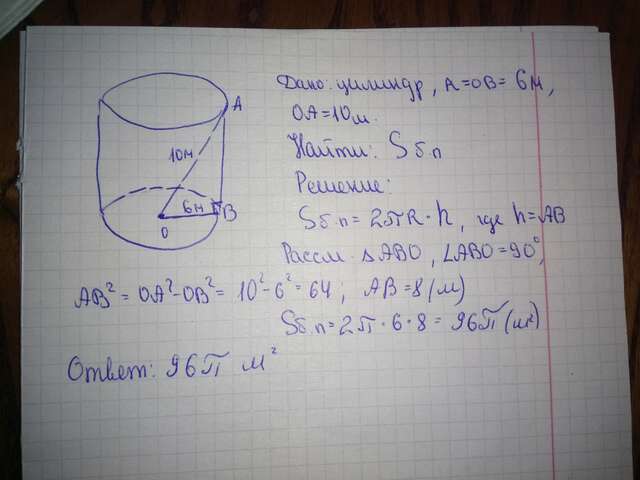 Дано: цилиндр, R=OB=6м,
OA=10м.
Найти: Sб.п
Решение:
Sб.п=2πR·h, где h=AB
Рассм. ΔABO, ∠ABO=90°,
AB²=OA²-OB²=10²-6²=64; AB=8(м)
Sб.п=2π·6·8=96π(м²)
Ответ: 96π м²
A
10м
6м
B
O